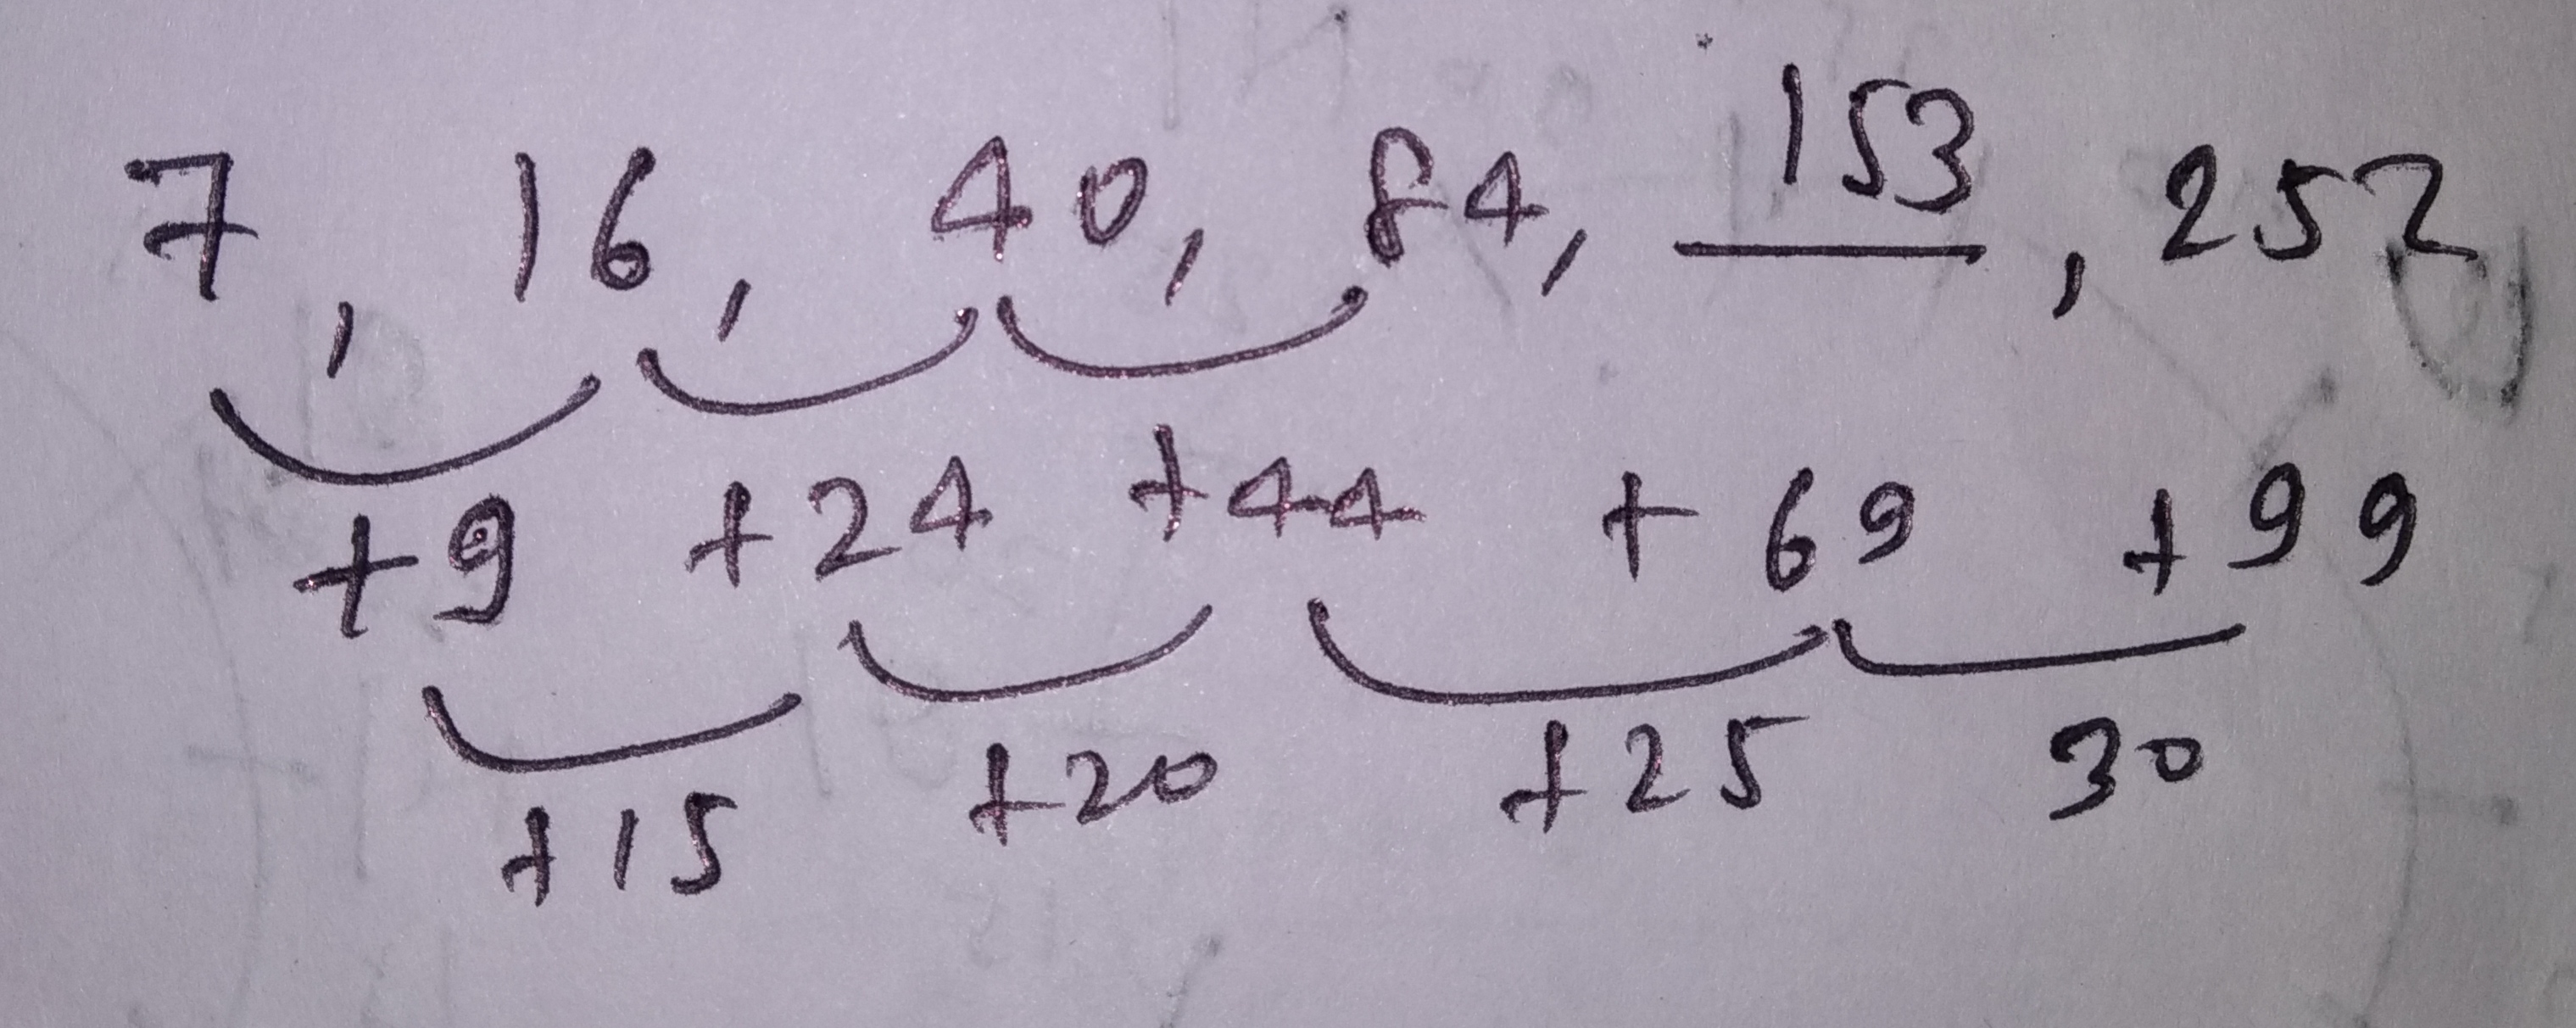 7, 16, 40, 84, 153, 252
+9 +24 +44 +69 +99
+15 +20 +25 30